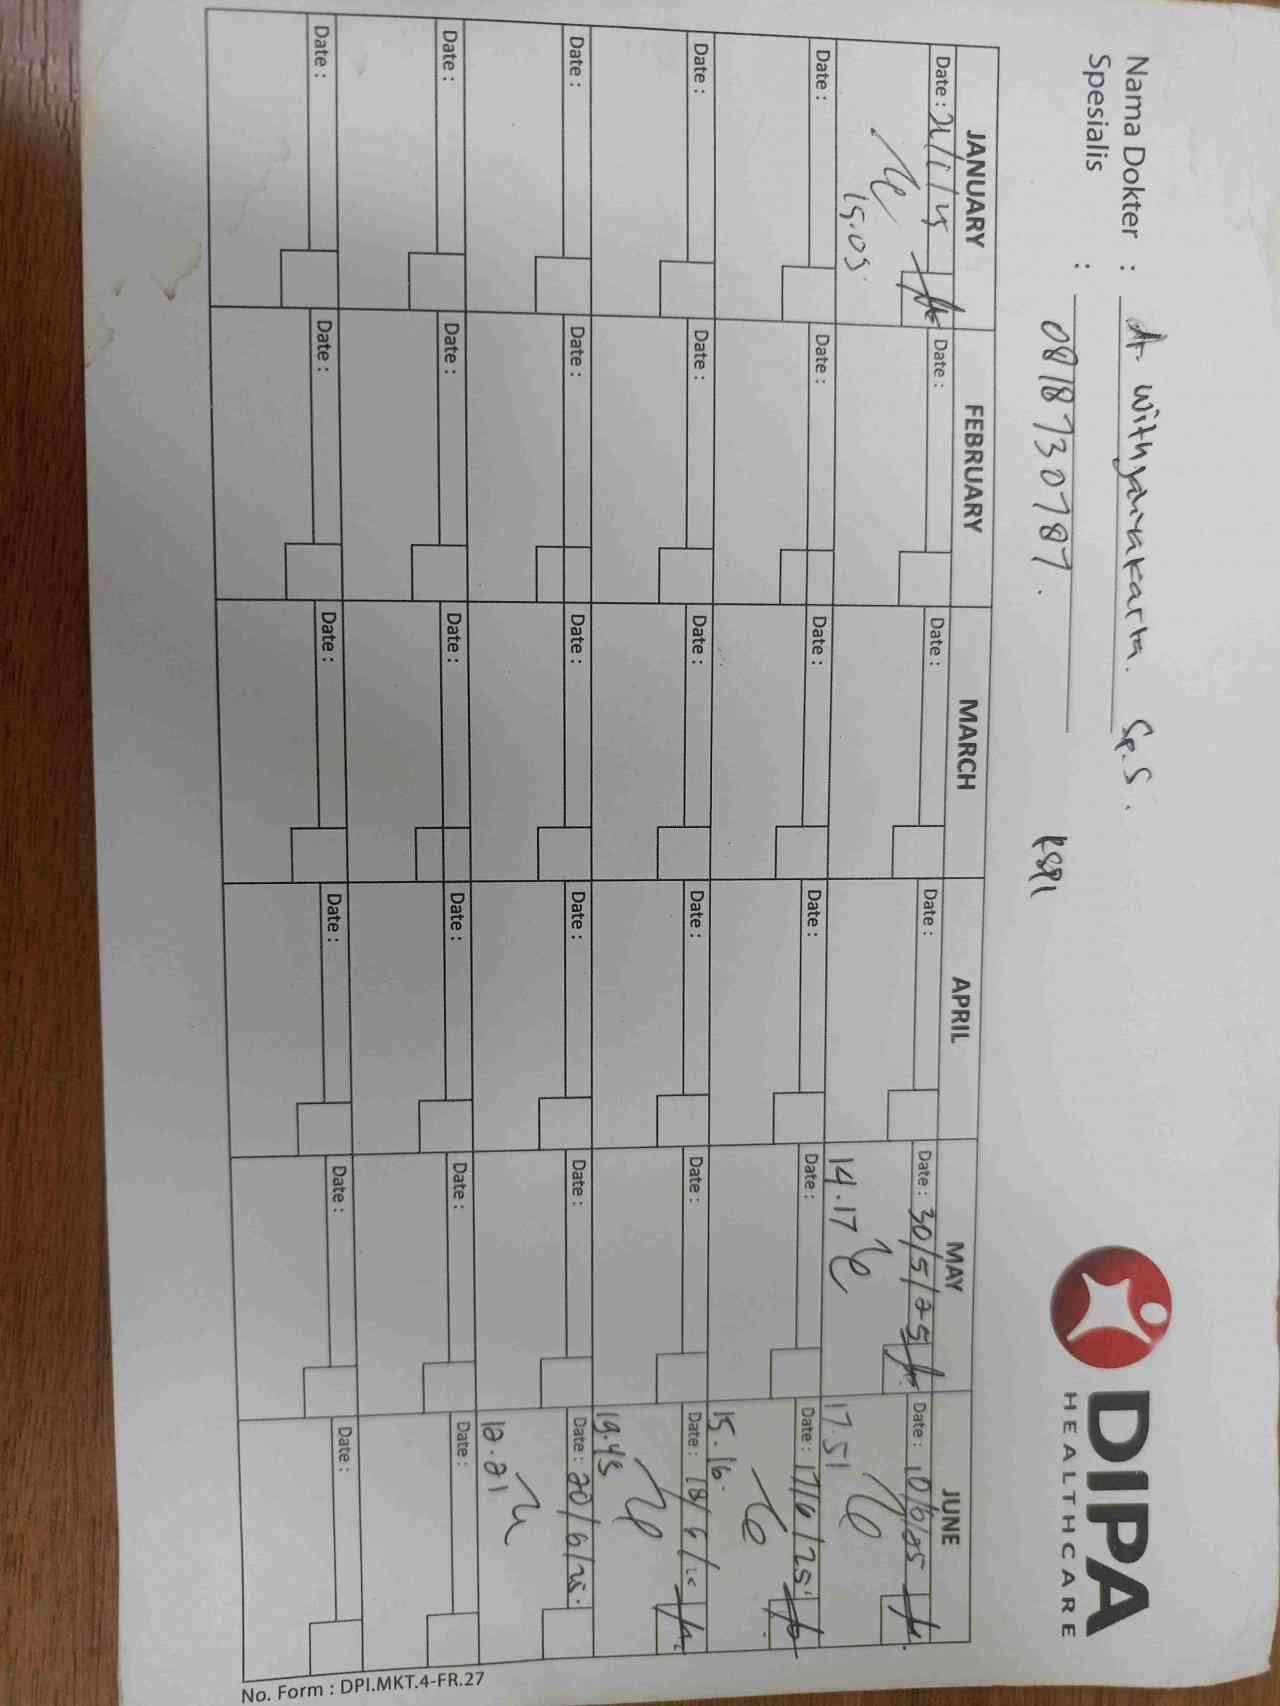 DIPA
HEALTHCARE
Nama Dokter :
Spesialis :
Sp.S.
0818730787.
JANUARY FEBRUARY MARCH APRIL MAY JUNE
Date : Date : Date : Date : Date : 30/5/25 Date : 10/6/25
15.05. 14.17 17.51
Date : Date : Date : Date : Date : Date : 17/6/25
15.16.
Date : Date : Date : Date : Date : Date : 18/6/25
19.45
Date : Date : Date : Date : Date : Date : 20/6/25.
12.21
Date : Date : Date : Date : Date : Date :
Date : Date : Date : Date : Date : Date :
No. Form : DPI.MKT.4-FR.27